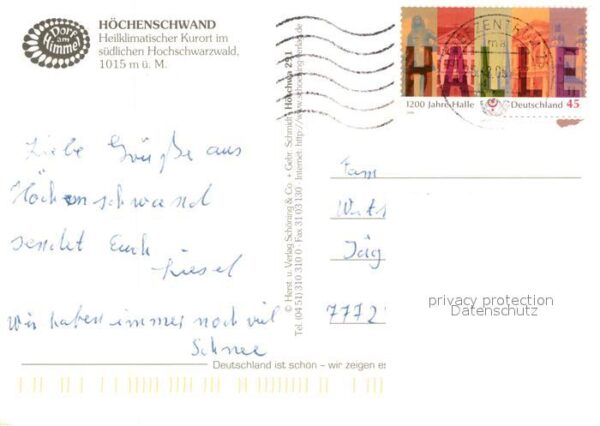 Dorf
am
Himmel
HÖCHENSCHWAND
Heilklimatischer Kurort im
südlichen Hochschwarzwald,
1015 m ü. M.
HALLE
1200 Jahre Halle
Deutschland 45
Liebe Grüße aus
Höchenschwand
sendet Euch
Liesel
Wir haben immer noch viel
Schnee
© Herst. u. Verlag Schöning & Co. + Gebr. Schmidt
Tel. (04 51) 310 310 0 · Fax 31 03 130 · Internet: http://www.schoening-verlag.de
Fam
Jäg
7772
privacy protection
Datenschutz
Deutschland ist schön – wir zeigen es